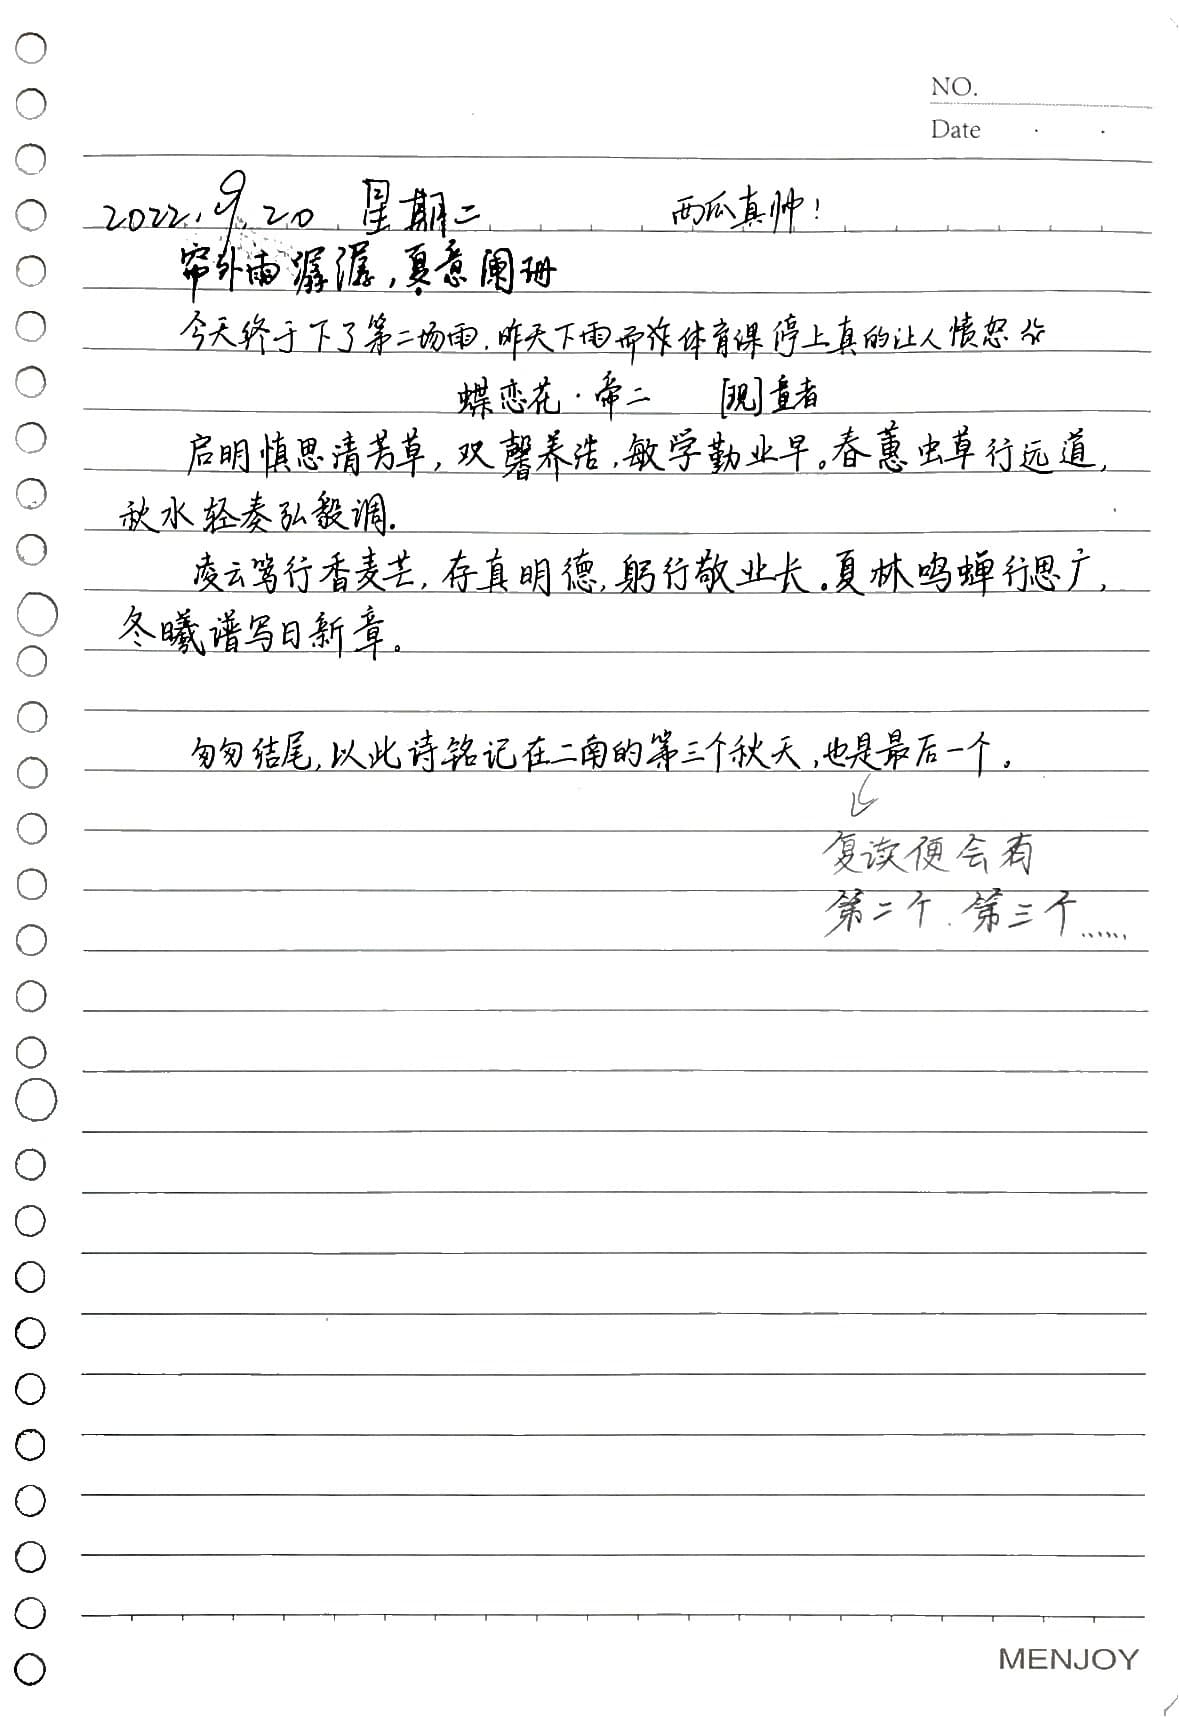 NO.
Date
2022.9.20 星期二 西瓜真帅！
帘外雨潺潺，夏意阑珊
今天终于下了第二场雨，昨天下雨而致体育课停上真的让人愤怒
蝶恋花·帝二 [现]童者
启明慎思清芳草，双馨养浩，敏学勤业早。春蕙虫草行远道，
秋水轻奏弘毅调.
凌云笃行香麦芒，存真明德，躬行敬业长。夏林鸣蝉行思广，
冬曦谱写日新章。
匆匆结尾，以此诗铭记在二南的第三个秋天，也是最后一个。
复读便会有
第二个.第三个……
MENJOY